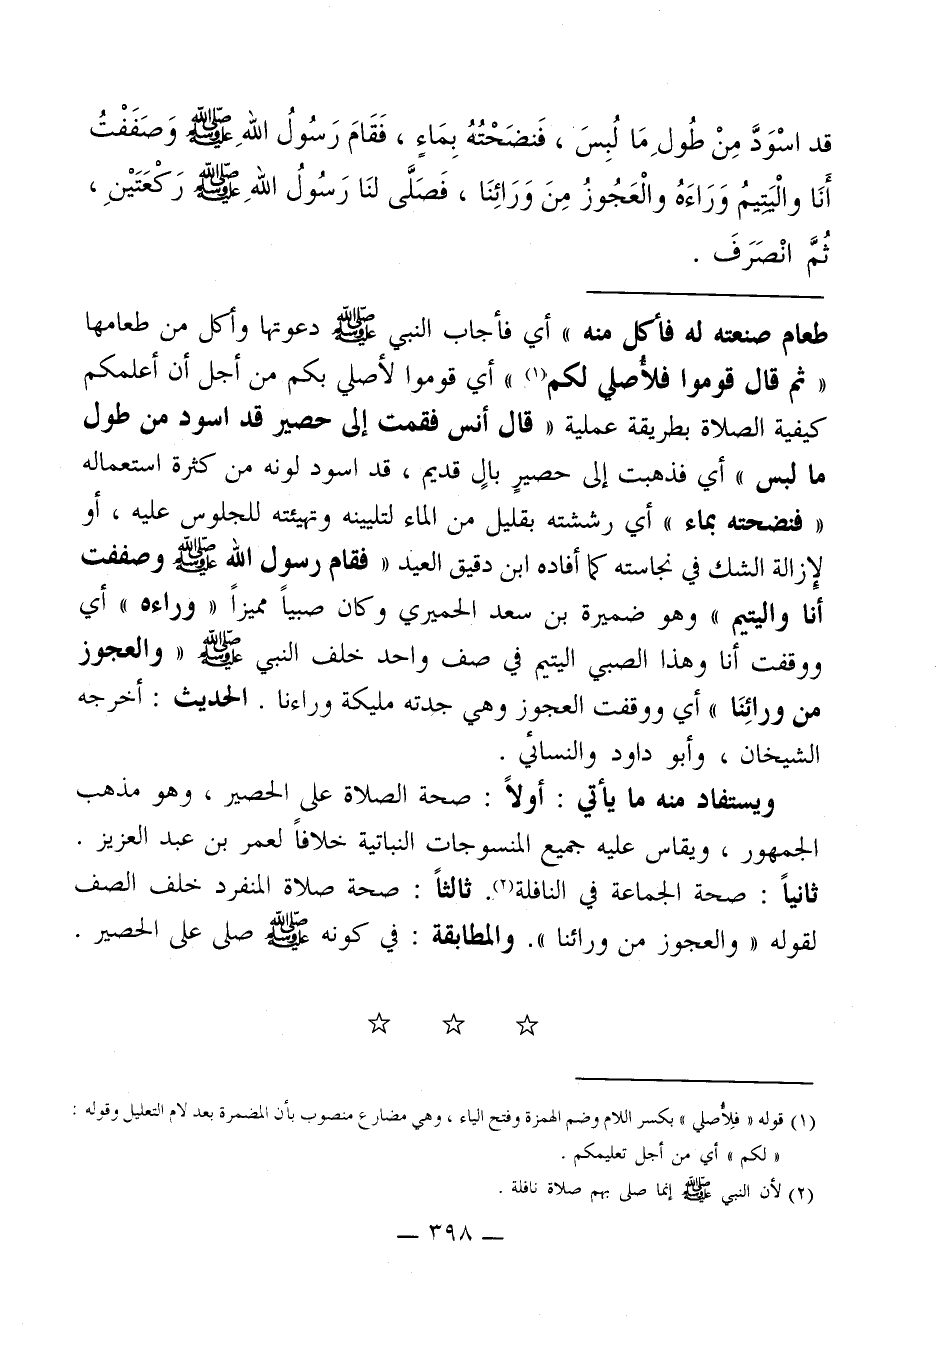 قد اسْوَدَّ مِنْ طُولِ مَا لُبِسَ ، فَنضَحْتُهُ بِمَاءٍ ، فَقَامَ رَسُولُ اللهِ ﷺ وَصَفَفْتُ
أَنَا والْيَتِيمُ وَرَاءَهُ والْعَجُوزُ مِنَ وَرَائِنَا ، فَصَلَّى لنَا رَسُولُ اللهِ ﷺ رَكْعَتَيْنِ ،
ثُمَّ انْصَرَفَ .
طعام صنعته له فأكل منه » أي فأجاب النبي ﷺ دعوتها وأكل من طعامها
« ثم قال قوموا فلأُصلي لكم(١) » أي قوموا لأصلي بكم من أجل أن أعلمكم
كيفية الصلاة بطريقة عملية « قال أنس فقمت إلى حصير قد اسود من طول
ما لبس » أي فذهبت إلى حصيرٍ بالٍ قديم ، قد اسود لونه من كثرة استعماله
« فنضحته بماء » أي رششته بقليل من الماء لتليينه وتهيئته للجلوس عليه ، أو
لإزالة الشك في نجاسته كما أفاده ابن دقيق العيد « فقام رسول الله ﷺ وصففت
أنا واليتيم » وهو ضميرة بن سعد الحميري وكان صبياً مميزاً « وراءه » أي
ووقفت أنا وهذا الصبي اليتيم في صف واحد خلف النبي ﷺ « والعجوز
من ورائِنَا » أي ووقفت العجوز وهي جدته مليكة وراءنا . الحديث : أخرجه
الشيخان ، وأبو داود والنسائي .
ويستفاد منه ما يأتي : أولاً : صحة الصلاة على الحصير ، وهو مذهب
الجمهور ، ويقاس عليه جميع المنسوجات النباتية خلافاً لعمر بن عبد العزيز .
ثانياً : صحة الجماعة في النافلة(٢). ثالثاً : صحة صلاة المنفرد خلف الصف
لقوله « والعجوز من ورائنا ». والمطابقة : في كونه ﷺ صلى على الحصير .
☆ ☆ ☆
(١) قوله « فلِأُصلي » بكسر اللام وضم الهمزة وفتح الياء ، وهي مضارع منصوب بأن المضمرة بعد لام التعليل وقوله :
« لكم » أي من أجل تعليمكم .
(٢) لأن النبي ﷺ إنما صلى بهم صلاة نافلة .
— ٣٩٨ —